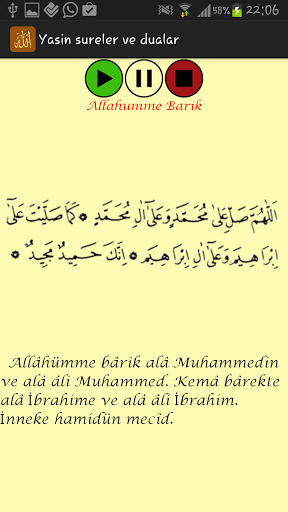 58% 22:06
Yasin sureler ve dualar
Allahumme Barik
اَللّٰهُمَّ صَلِّ عَلٰى مُحَمَّدٍ وَعَلٰٓى اٰلِ مُحَمَّدٍ ۞ كَمَا صَلَّيْتَ عَلٰٓى
اِبْرَاهِيمَ وَعَلٰٓى اٰلِ اِبْرَاهِيمَ ۞ اِنَّكَ حَمِيدٌ مَجِيدٌ ۞
Allâhümme bârik alâ Muhammedin
ve alâ âli Muhammed. Kemâ bârekte
alâ İbrahime ve alâ âli İbrahim.
İnneke hamidün mecîd.